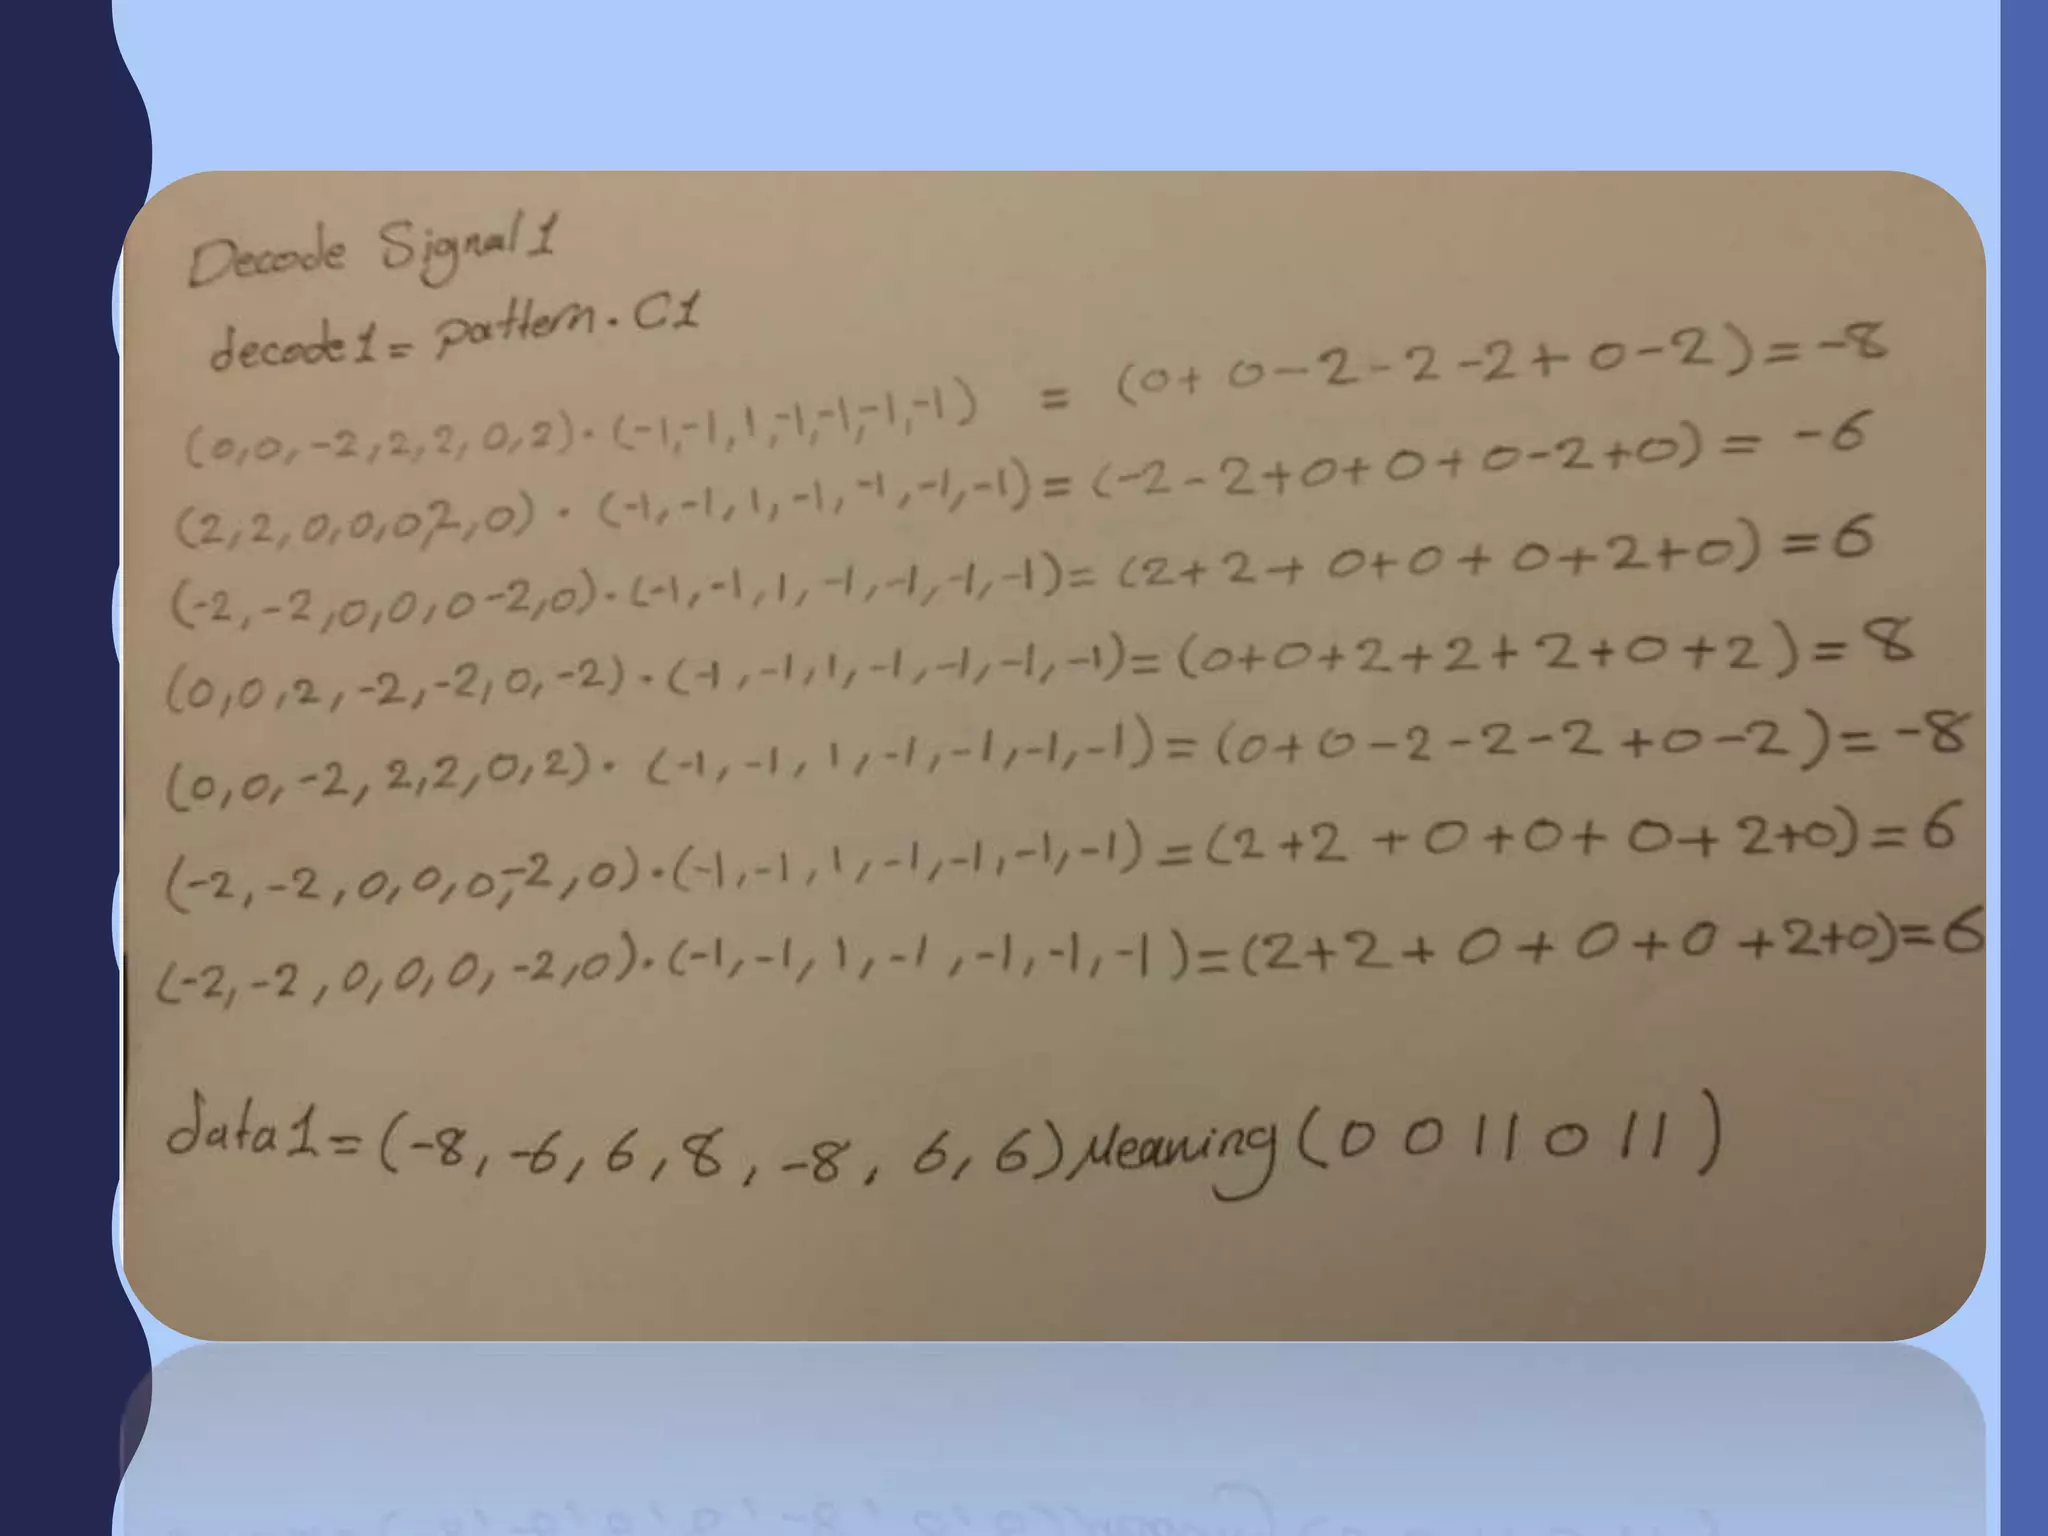 Decode Signal1
decode1 = pattern . C1
(0,0,-2,2,2,0,2).(-1,-1,1,-1,-1,-1,-1) = (0+0-2-2-2+0-2)=-8
(2,2,0,0,0,2,0).(-1,-1,1,-1,-1,-1,-1)=(-2-2+0+0+0-2+0)=-6
(-2,-2,0,0,0-2,0).(-1,-1,1,-1,-1,-1,-1)=(2+2+0+0+0+2+0)=6
(0,0,2,-2,-2,0,-2).(-1,-1,1,-1,-1,-1,-1)=(0+0+2+2+2+0+2)=8
(0,0,-2,2,2,0,2).(-1,-1,1,-1,-1,-1,-1)=(0+0-2-2-2+0-2)=-8
(-2,-2,0,0,0,-2,0).(-1,-1,1,-1,-1,-1,-1)=(2+2+0+0+0+2+0)=6
(-2,-2,0,0,0,-2,0).(-1,-1,1,-1,-1,-1,-1)=(2+2+0+0+0+2+0)=6
data1=(-8,-6,6,8,-8,6,6) Meaning (0 0 1 1 0 1 1)